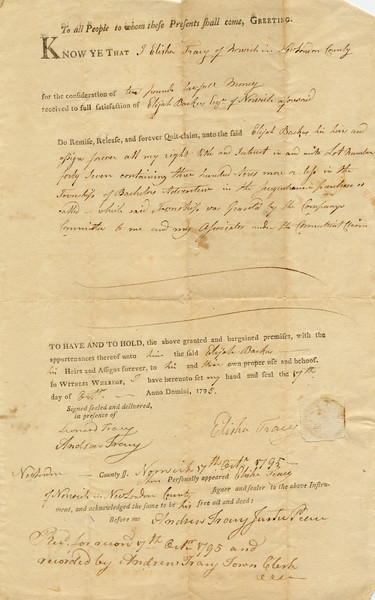 To all People to whom these Presents shall come, GREETING.
KNOW YE THAT I Elisha Tracy of Norwich in New London County
for the consideration of ten pounds Lawfull Money
received to full satisfaction of Elijah Backus Esqr of Norwich aforesaid
Do Remise, Release, and forever Quit-claim, unto the said Elijah Backus his heirs and
assigns forever all my right title and Interest in and unto Lot Number
forty Seven containing three hundred Acres more or less in the
Township of Bachelors Adventure in the Susquehanna purchase so
called – which said Township was Granted by the Companys
Committee to me and my Associates under the Connecticut Claim
TO HAVE AND TO HOLD, the above granted and bargained premises, with the
appurtenances thereof unto him the said Elijah Backus
his Heirs and Assigns forever, to his and their own proper use and behoof.
In Witness Whereof, I have hereunto set my hand and seal the 17th
day of Octr. Anno Domini, 1795.
Signed sealed and delivered,
in presence of
Leonard Tracy
Andrew Tracy
Elisha Tracy
New London County ss. Norwich 17th Octr. 1795
then Personally appeared Elisha Tracy
of Norwich in New London County Signer and sealer to the above Instru-
ment, and acknowledged the same to be his free act and deed:
Before me Andrew Tracy Justice Peace
Recd. for record 17th Octr. 1795 and
recorded by Andrew Tracy Town Clerk